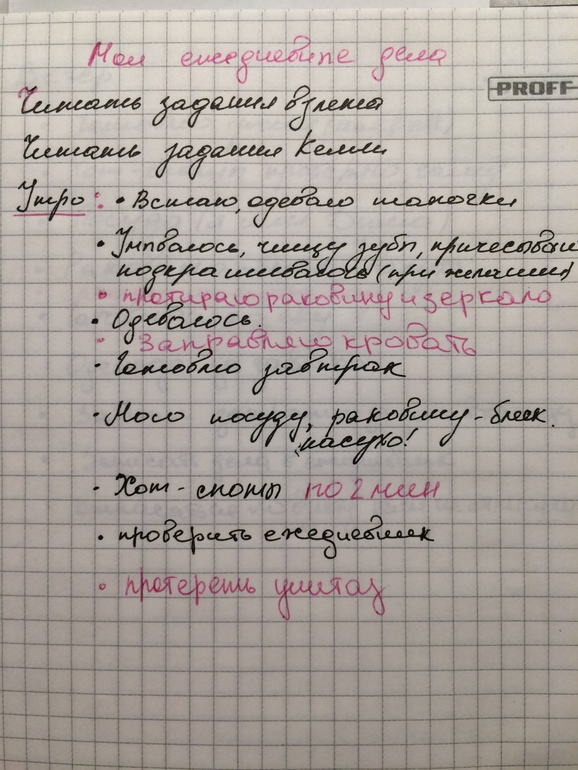 Мои ежедневные дела
PROFF
Читать задания взлета
Читать задания Келли
Утро: • Встаю, одеваю тапочки
• Умываюсь, чищу зубы, причесываю
подкрашиваюсь (при желании)
• протираю раковину и зеркало
• Одеваюсь.
• Заправляю кровать
• Готовлю завтрак
• Мою посуду, раковину - блеск.
насухо!
• Хот-споты по 2 мин
• проверить ежедневник
• протереть унитаз